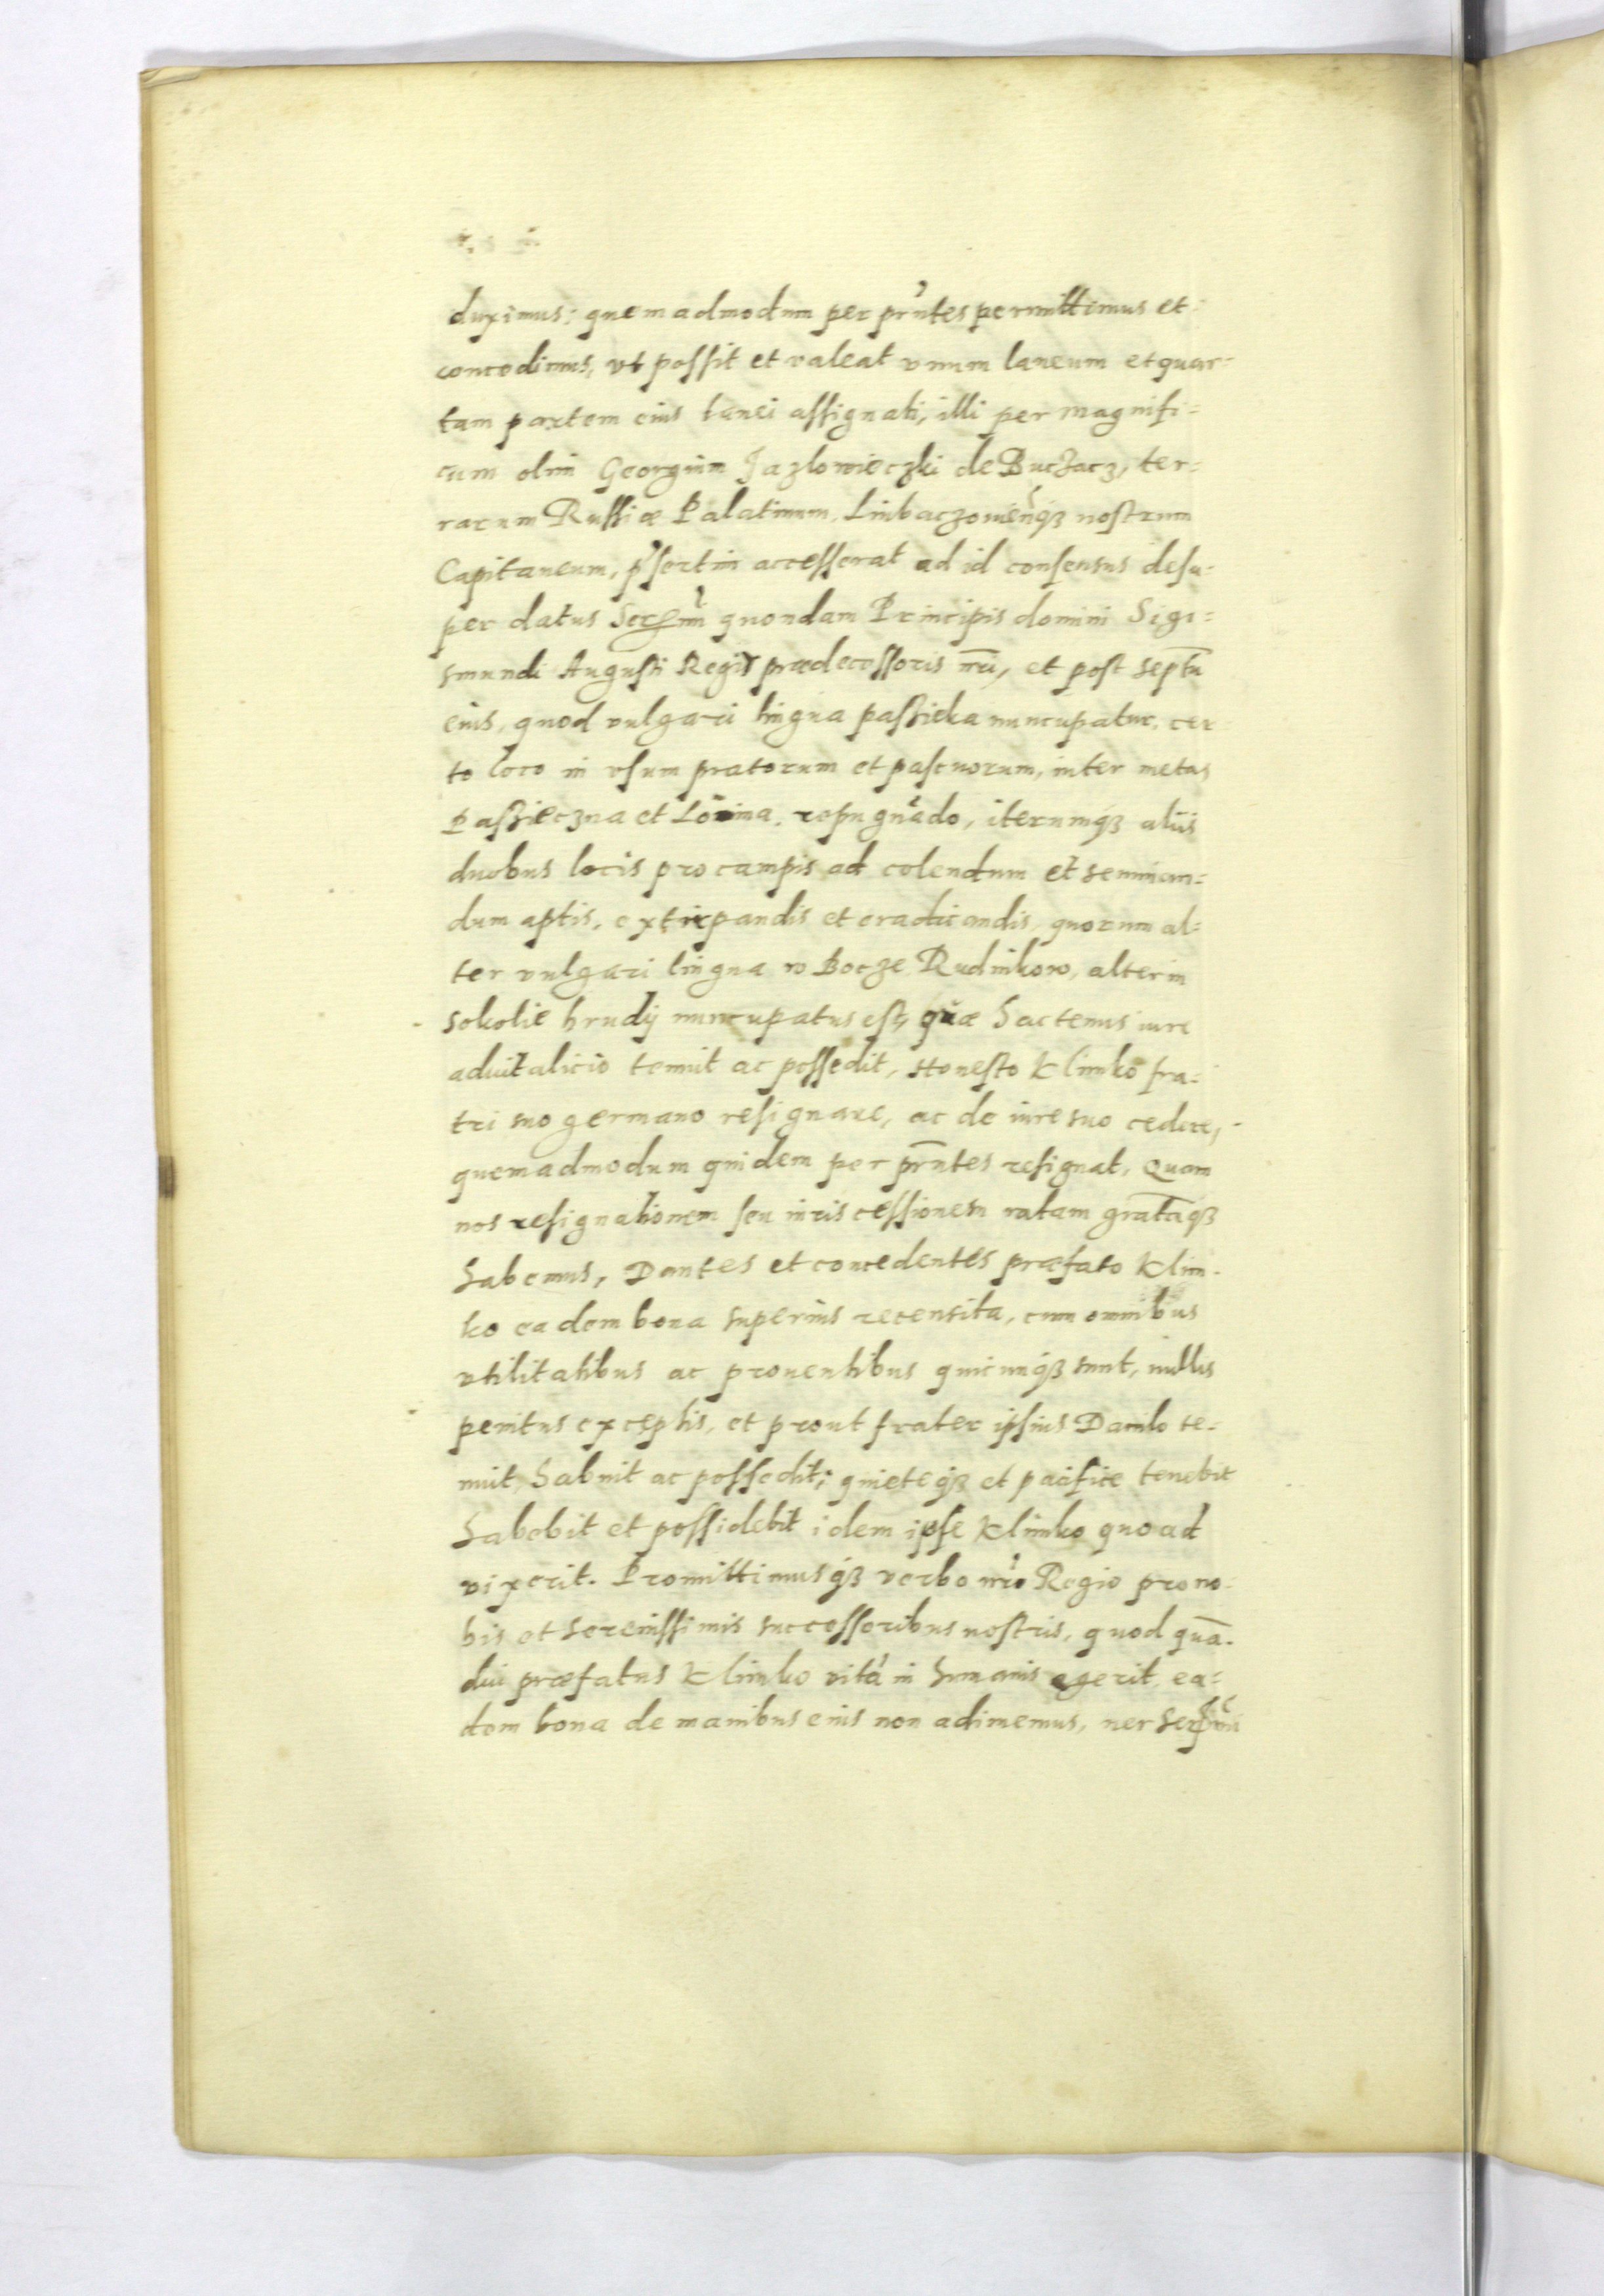 duximus: quemadmodum per pr̃ntes permittimus et
concedimus, vt possit et valeat vnum laneum et quar-
tam partem eius lanei assignati, illi per magnifi-
cum olim Georgium Jazlowieczki de Buczacz, ter-
rarum Russiæ Palatinum, Liubaczouien̄qз nostrum
Capitaneum, p̃sertim accesserat ad id consensus desu-
per datus Serᵉⁿⁱ quondam Principis domini Sigi-
smundi Augusti Regis prædecessoris nr̃i, et post septū
eius, quod vulgari lingua passieka nuncupatur, cer-
to loco in vsum pratorum et pascuorum, inter metas
Passieczna et
duobus locis pro campis ad colendum et seminan-
dum aptis, extirpandis et eradicandis, quorum al-
ter vulgari lingua w Bocze Rudnikow, alter in
sokolie hrudÿ nuncupatus est, quæ hactenus iure
aduitalicio tenuit ac possedit, Honesto Klimko fra-
tri suo germano resignare, ac de iure suo cedere,
quemadmodum quidem per pr̃ntes resignat, Quam
nos resignationem seu iuris cessionem ratam gratāqз
habemus, Dantes et concedentes præfato Klim-
ko eadem bona superius recensita, cum omnibus
vtilitatibus ac prouentibus quicunqз sunt, nullis
penitus exceptis, et prout frater ipsius Danilo te-
nuit, habuit ac possedit; quieteqз et pacifice tenebit
habebit et possidebit idem ipse Klimko quoad
vixerit. Promittimusqз verbo nr̃o Regio pro no-
bis et serenissimis successoribus nostris, quod quā-
diu præfatus Klimko vitā in humanis egerit, ea-
dem bona de manibus eius non adimemus, nec